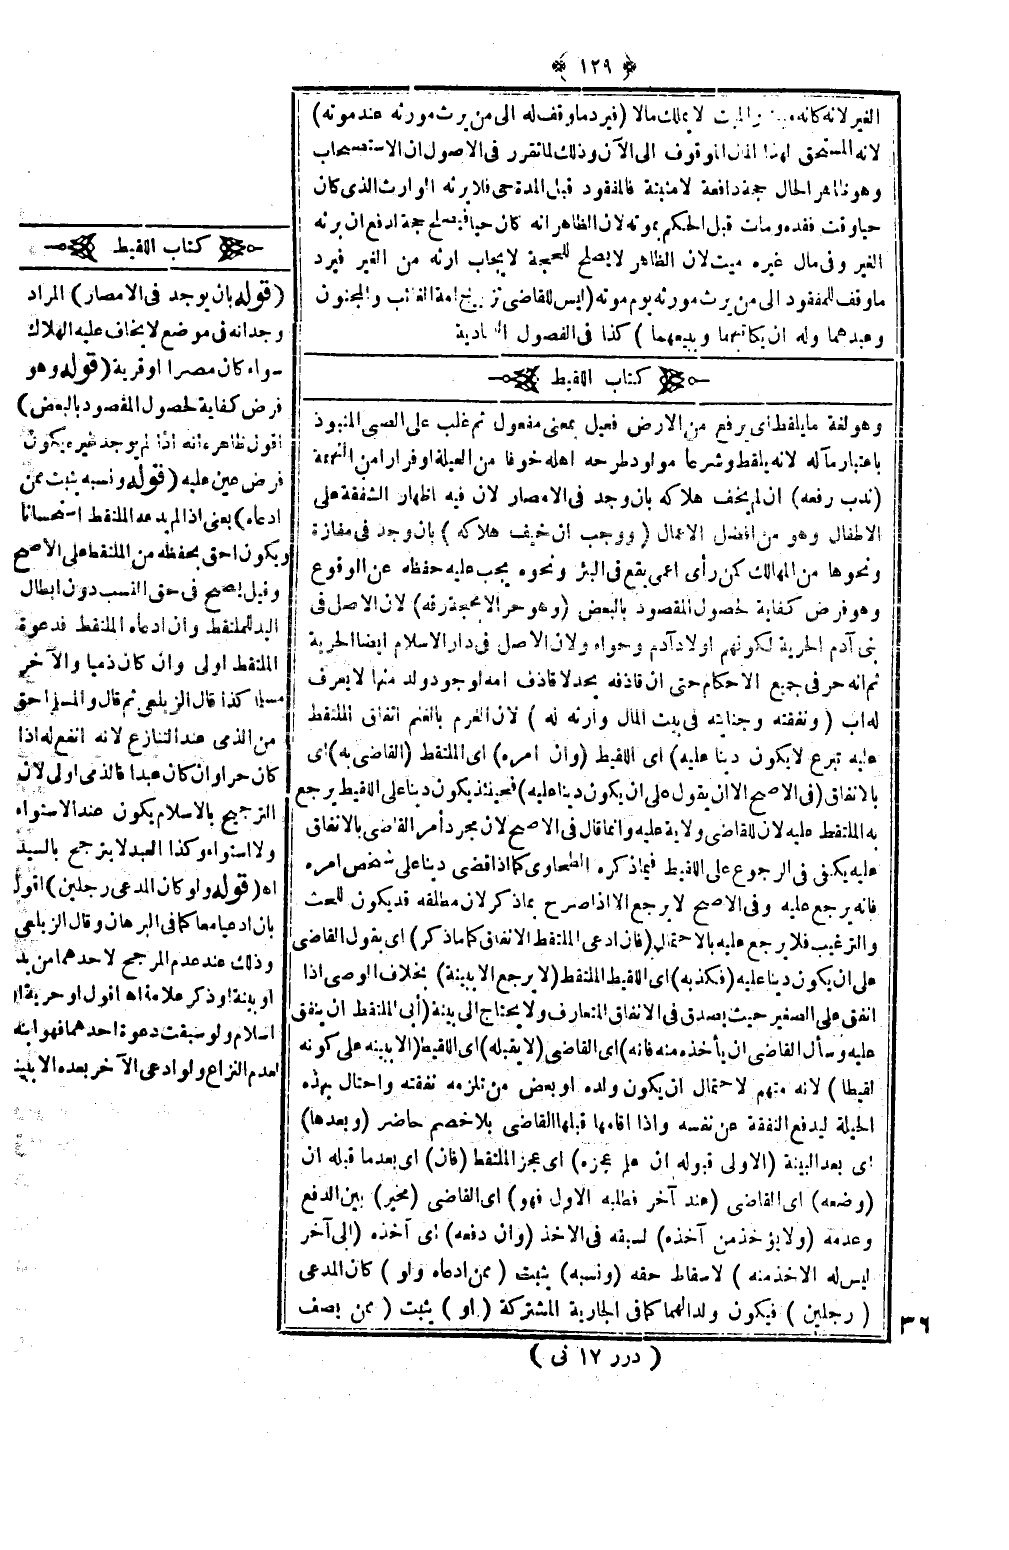 ﴿ ١٢٩ ﴾
الغير لانه كانه ميت والميت لا يملك مالا (فيرد ما وقف له الى من يرث مورثه عند موته)
لانه المستحق لهذا المال الموقوف الى الآن وذلك لما تقرر فى الاصول ان الاستصحاب
وهو ظاهر الحال حجة دافعة لا مثبتة فالمفقود قبل المدة حى فلا يرثه الوارث الذى كان
حيا وقت فقده ومات قبل الحكم بموته لان الظاهر انه كان حيا فيصلح حجة لدفع ان يرثه
الغير وفى مال غيره ميت لان الظاهر لا يصلح للحجة لايجاب ارثه من الغير فيرد
ما وقف للمفقود الى من يرث مورثه يوم موته (ليس للقاضى تزويج امة الغائب والمجنون
وعبدهما وله ان يكاتبهما ويبيعهما) كذا فى الفصول العمادية
كتاب اللقيط
وهو لغة ما يلقط اى يرفع من الارض فعيل بمعنى مفعول ثم غلب على الصبى المنبوذ
باعتبار مآله لانه يلقط وشرعا مولود طرحه اهله خوفا من العيلة او فرارا من التهمة
(ندب رفعه) ان لم يخف هلاكه بان وجد فى الامصار لان فيه اظهار الشفقة على
الاطفال وهو من افضل الاعمال (ووجب ان خيف هلاكه) بان وجد فى مفازة
ونحوها من المهالك كمن رأى اعمى يقع فى البئر ونحوه يجب عليه حفظه عن الوقوع
وهو فرض كفاية لحصول المقصود بالبعض (وهو حر الا بحجة رقه) لان الاصل فى
بنى آدم الحرية لكونهم اولاد آدم وحواء ولان الاصل فى دار الاسلام ايضا الحرية
ثم انه حر فى جميع الاحكام حتى ان قاذفه يحد لا قاذف امه لوجود ولد منها لا يعرف
له اب (ونفقته وجنايته فى بيت المال وارثه له) لان الغرم بالغنم انفاق الملتقط
عليه تبرع لا يكون دينا عليه) اى اللقيط (وان امره) اى الملتقط (القاضى به) اى
بالانفاق (فى الاصح الا ان يقول على ان يكون دينا عليه) فحينئذ يكون دينا على اللقيط يرجع
به الملتقط عليه لان للقاضى ولاية عليه وانما قال فى الاصح لان مجرد أمر القاضى بالانفاق
عليه يكفى فى الرجوع على اللقيط فيما ذكره الطحاوى كما اذا قضى دينا على شخص امره
فانه يرجع عليه وفى الاصح لا يرجع الا اذا صرح بما ذكر لان مطلقه قد يكون للحث
والترغيب فلا يرجع عليه بالاحتمال (فان ادعى الملتقط الانفاق كما ما ذكر) اى بقول القاضى
على ان يكون دينا عليه (فكذبه) اى اللقيط الملتقط (لا يرجع الا ببينة) بخلاف الوصى اذا
انفق على الصغير حيث يصدق فى الانفاق المتعارف ولا يحتاج الى بينة (أبى الملتقط ان ينفق
عليه وسأل القاضى ان يأخذه منه فانه) اى القاضى (لا يقبله) اى اللقيط (الا ببينة على كونه
لقيطا) لانه متهم لاحتمال ان يكون ولده او بعض من تلزمه نفقته واحتال بهذه
الحيلة ليدفع النفقة عن نفسه واذا اقامها قبلها القاضى بلا خصم حاضر (وبعدها)
اى بعد البينة (الاولى قبوله ان علم عجزه) اى عجز الملتقط (فان) اى بعد ما قبله ان
(وضعه) اى القاضى (عند آخر فطلبه الاول فهو) اى القاضى (مخير) بين الدفع
وعدمه (ولا يؤخذ من آخذه) لسبقه فى الاخذ (وان دفعه) اى آخذه (الى آخر
ليس له الاخذ منه) لاسقاط حقه (ونسبه) يثبت (ممن ادعاه ولو) كان المدعى
(رجلين) فيكون ولدا لهما كما فى الجارية المشتركة (او) يثبت (ممن يصف
( درر ١٧ نى )
٣٦
كتاب اللقيط
(قوله بان يوجد فى الامصار) المراد
وجدانه فى موضع لا يخاف عليه الهلاك
سواء كان مصرا او قرية (قوله وهو
فرض كفاية لحصول المقصود بالبعض)
اقول ظاهره انه اذا لم يوجد غيره يكون
فرض عين عليه (قوله ونسبه يثبت ممن
ادعاه) يعنى اذا لم يدعه الملتقط استحسانا
ويكون احق بحفظه من الملتقط على الاصح
وقيل يصح فى حق النسب دون ابطال
اليد للملتقط وان ادعاه الملتقط فدعوة
الملتقط اولى وان كان ذميا والآخر
مسلما كذا قال الزيلعى ثم قال والمسلم احق
من الذمى عند التنازع لانه انفع له اذا
كان حرا وان كان عبدا فالذمى اولى لان
الترجيح بالاسلام يكون عند الاستواء
ولا استواء وكذا العبد لا يترجح بالسيد
اه (قوله ولو كان المدعى رجلين) اقول
بان ادعيا معا كما فى البرهان وقال الزيلعى
وذلك عند عدم المرجح لاحدهما من يد
او بينة او ذكر علامة اه اقول او حرية او
اسلام ولو سبقت دعوة احدهما فهو ابنه
لعدم النزاع ولو ادعى الآخر بعده الا ببينة